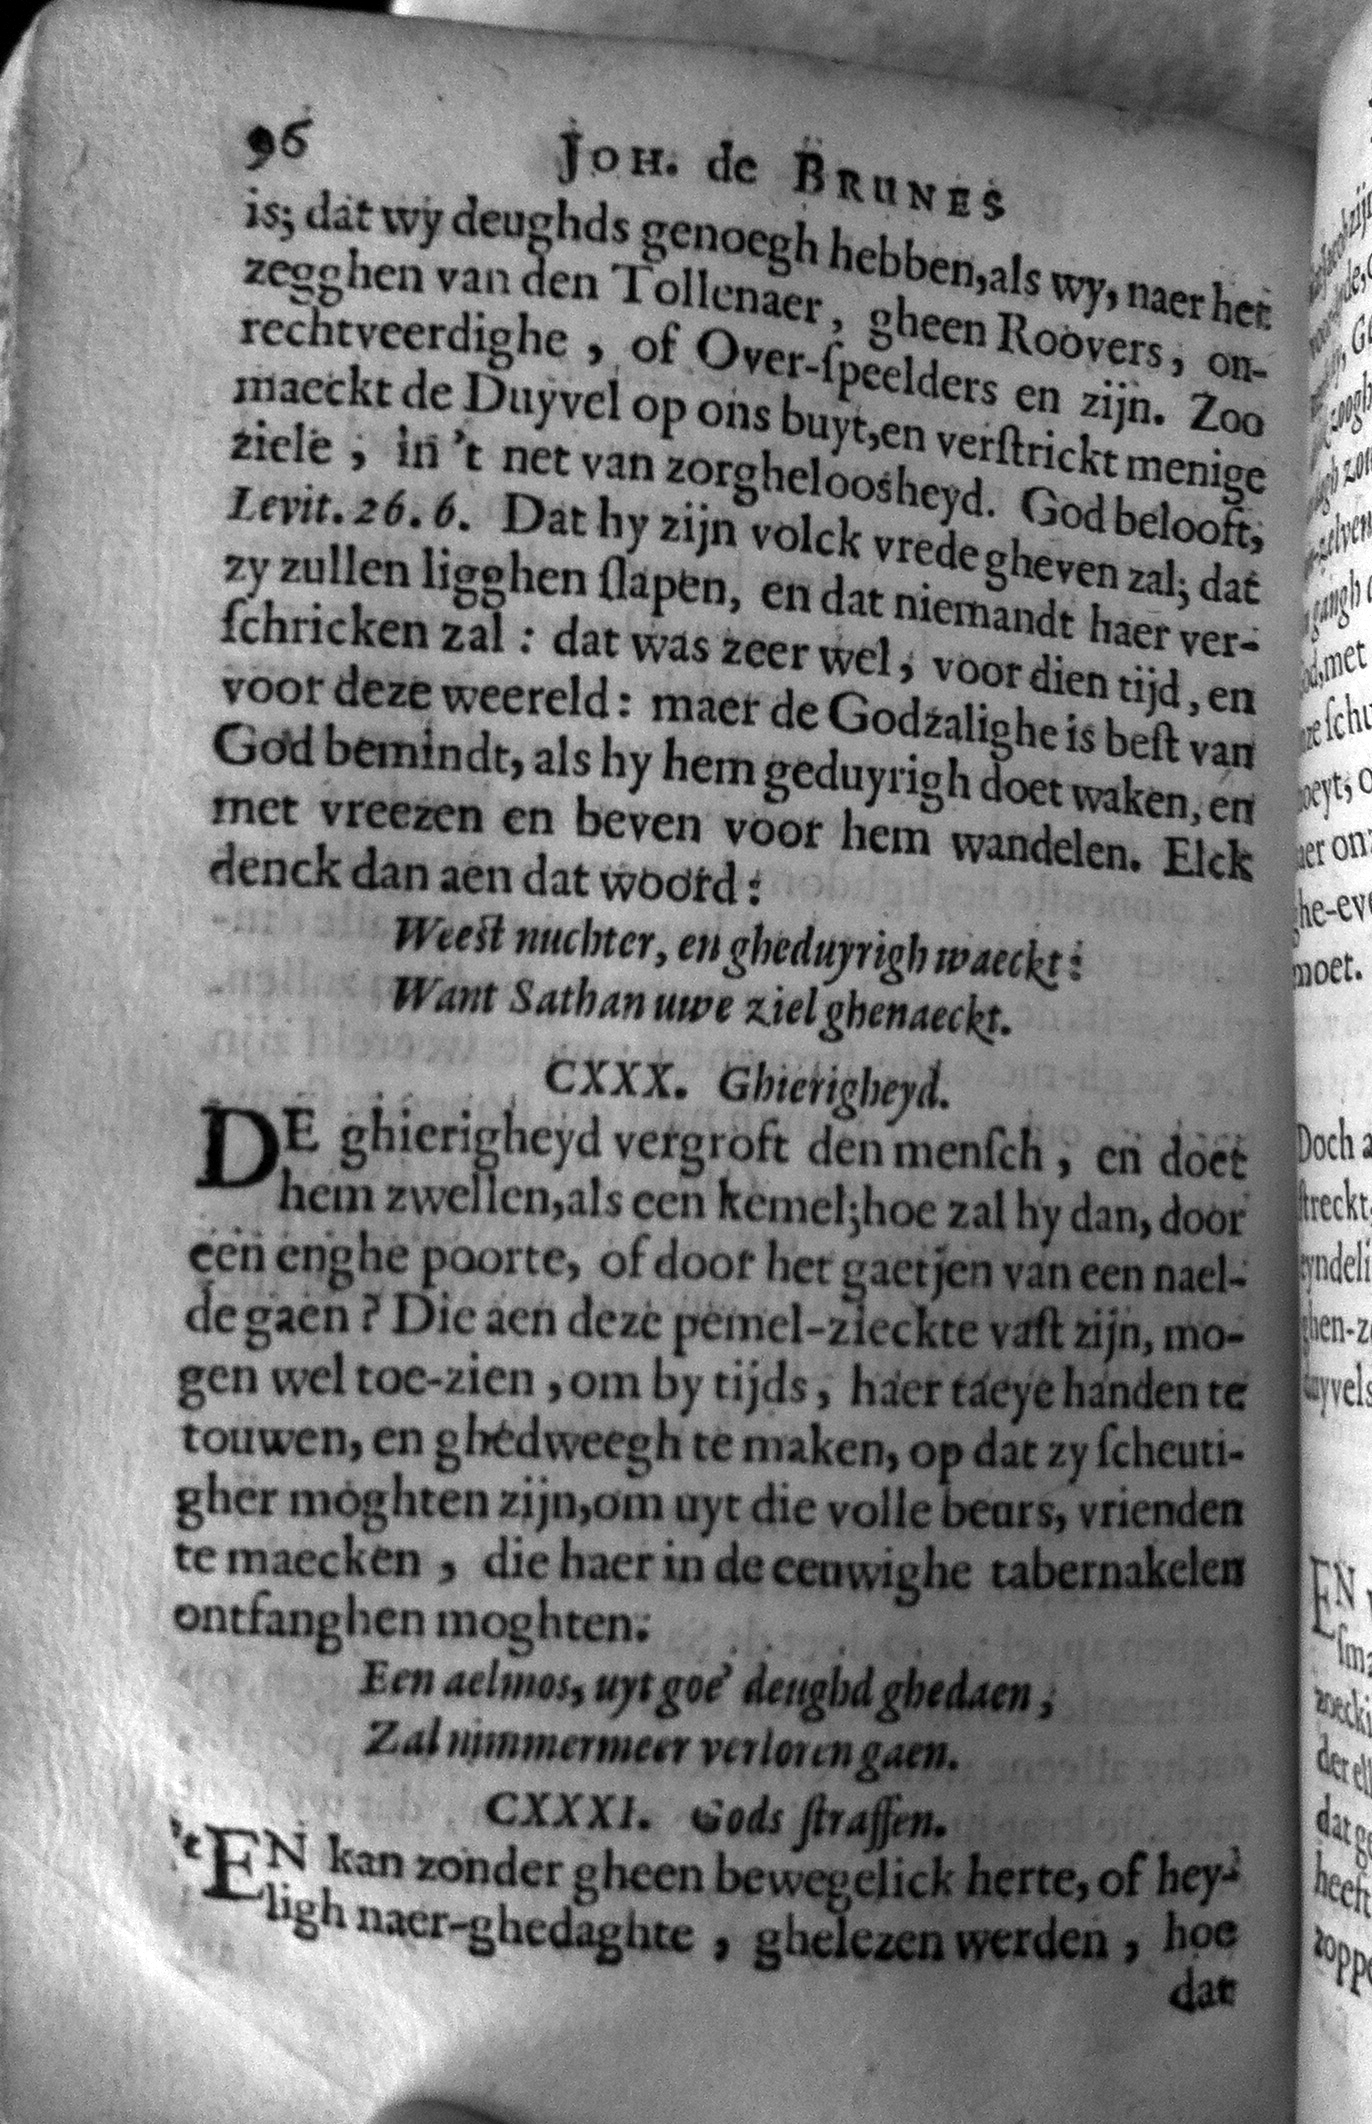 96 JOH. de BRUNES
is; dat wy deughds genoegh hebben,als wy, naer het
zegghen van den Tollenaer, gheen Roovers, on-
rechtveerdighe, of Over-ſpeelders en zijn. Zoo
maeckt de Duyvel op ons buyt,en verſtrickt menige
ziele, in 't net van zorgheloosheyd. God belooft,
Levit. 26. 6. Dat hy zijn volck vrede gheven zal; dat
zy zullen ligghen ſlapen, en dat niemandt haer ver-
ſchricken zal: dat was zeer wel, voor dien tijd, en
voor deze weereld: maer de Godzalighe is beſt van
God bemindt, als hy hem geduyrigh doet waken, en
met vreezen en beven voor hem wandelen. Elck
denck dan aen dat woord:
Weeſt nuchter, en gheduyrigh waeckt:
Want Sathan uwe ziel ghenaeckt.
CXXX. Ghierigheyd.
DE ghierigheyd vergroft den menſch, en doet
hem zwellen,als een kemel;hoe zal hy dan, door
een enghe poorte, of door het gaetjen van een nael-
de gaen? Die aen deze pemel-zieckte vaſt zijn, mo-
gen wel toe-zien, om by tijds, haer taeye handen te
touwen, en ghedweegh te maken, op dat zy ſcheuti-
gher moghten zijn,om uyt die volle beurs, vrienden
te maecken, die haer in de eeuwighe tabernakelen
ontfanghen moghten.
Een aelmos, uyt goe' deughd ghedaen,
Zal nimmermeer verloren gaen.
CXXXI. Gods ſtraffen.
'tEN kan zonder gheen bewegelick herte, of hey-
ligh naer-ghedaghte, ghelezen werden, hoe
dat